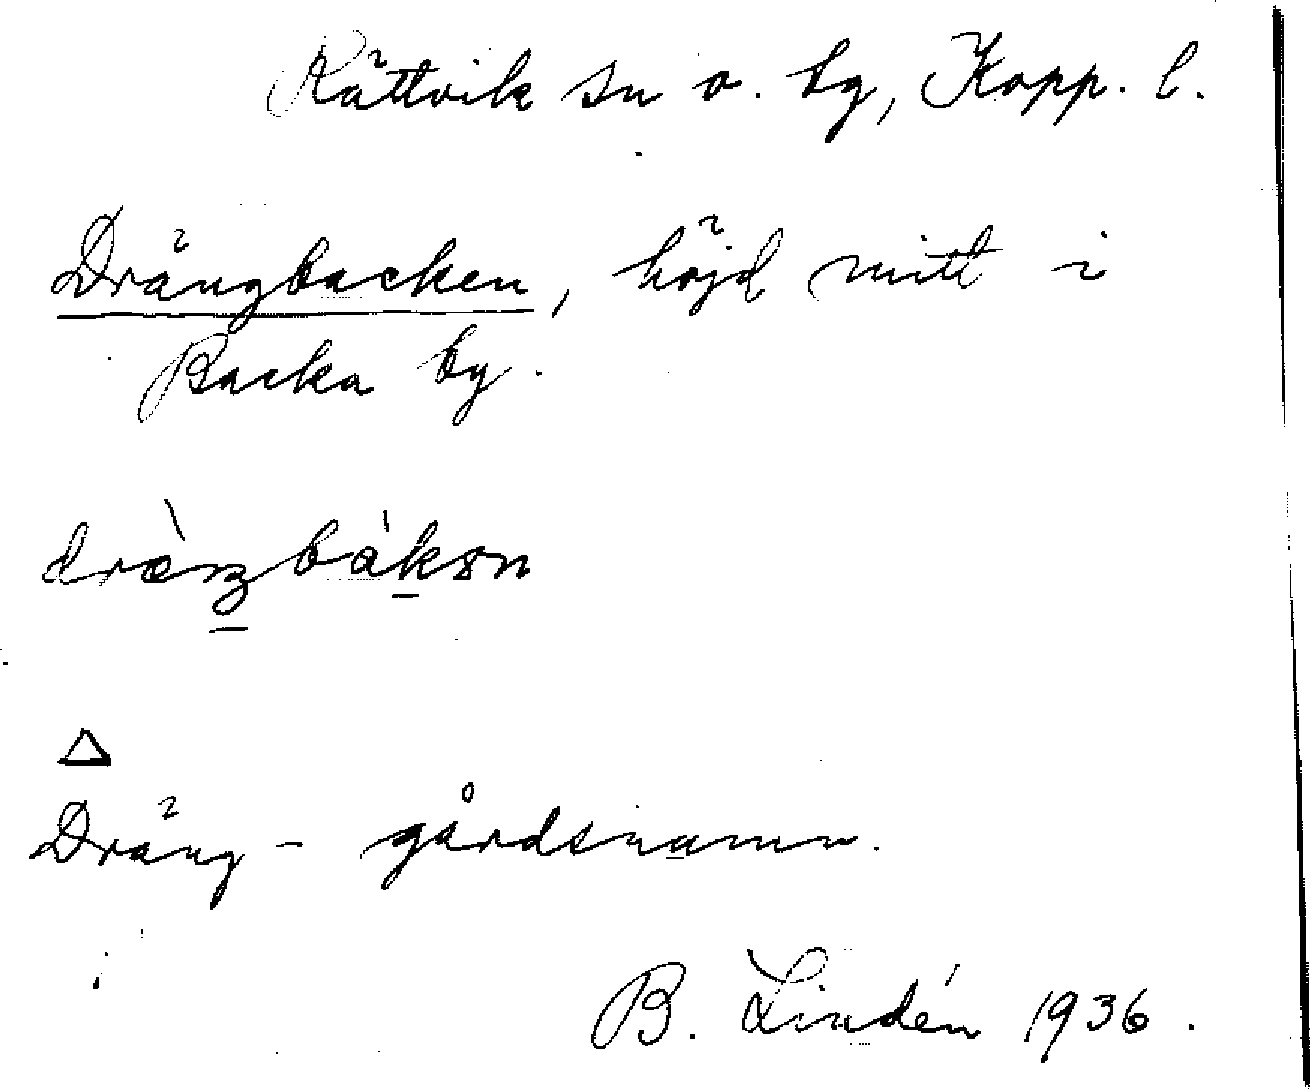 Rättvik sn o. by, Kopp. l.
Drängbacken, höjd mitt i
Backa by.
Dräng - gårdsnamn.
B. Lindén 1936.